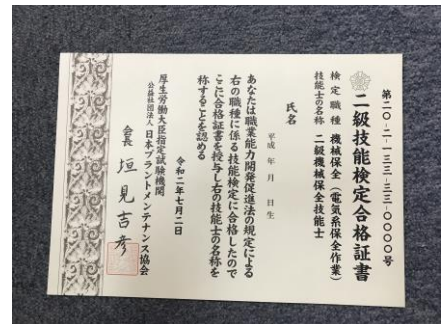 第二〇-二-一三三-三三-〇〇〇〇号
二級技能検定合格証書
検定職種 機械保全（電気系保全作業）
技能士の名称 二級機械保全技能士
氏名
平成 年 月 日生
あなたは職業能力開発促進法の規定による
右の職種に係る技能検定に合格したので
ここに合格証書を授与し右の技能士の名称を
称することを認める
令和二年七月二日
厚生労働大臣指定試験機関
公益社団法人 日本プラントメンテナンス協会
会長 垣見吉彦